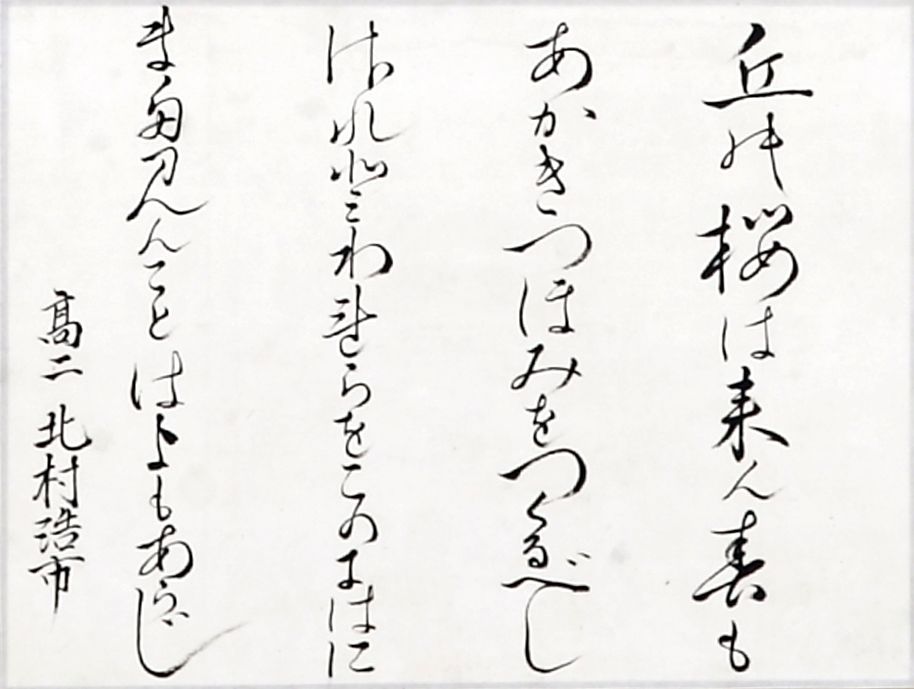 丘の桜は来ん春も
あかきつほみをつくるべし
われらをこのにはに
また見んことはよもあらじ
高二 北村浩市